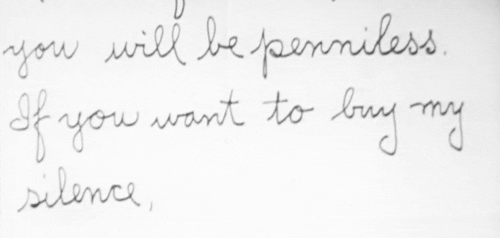 you will be penniless.
If you want to buy my
silence,